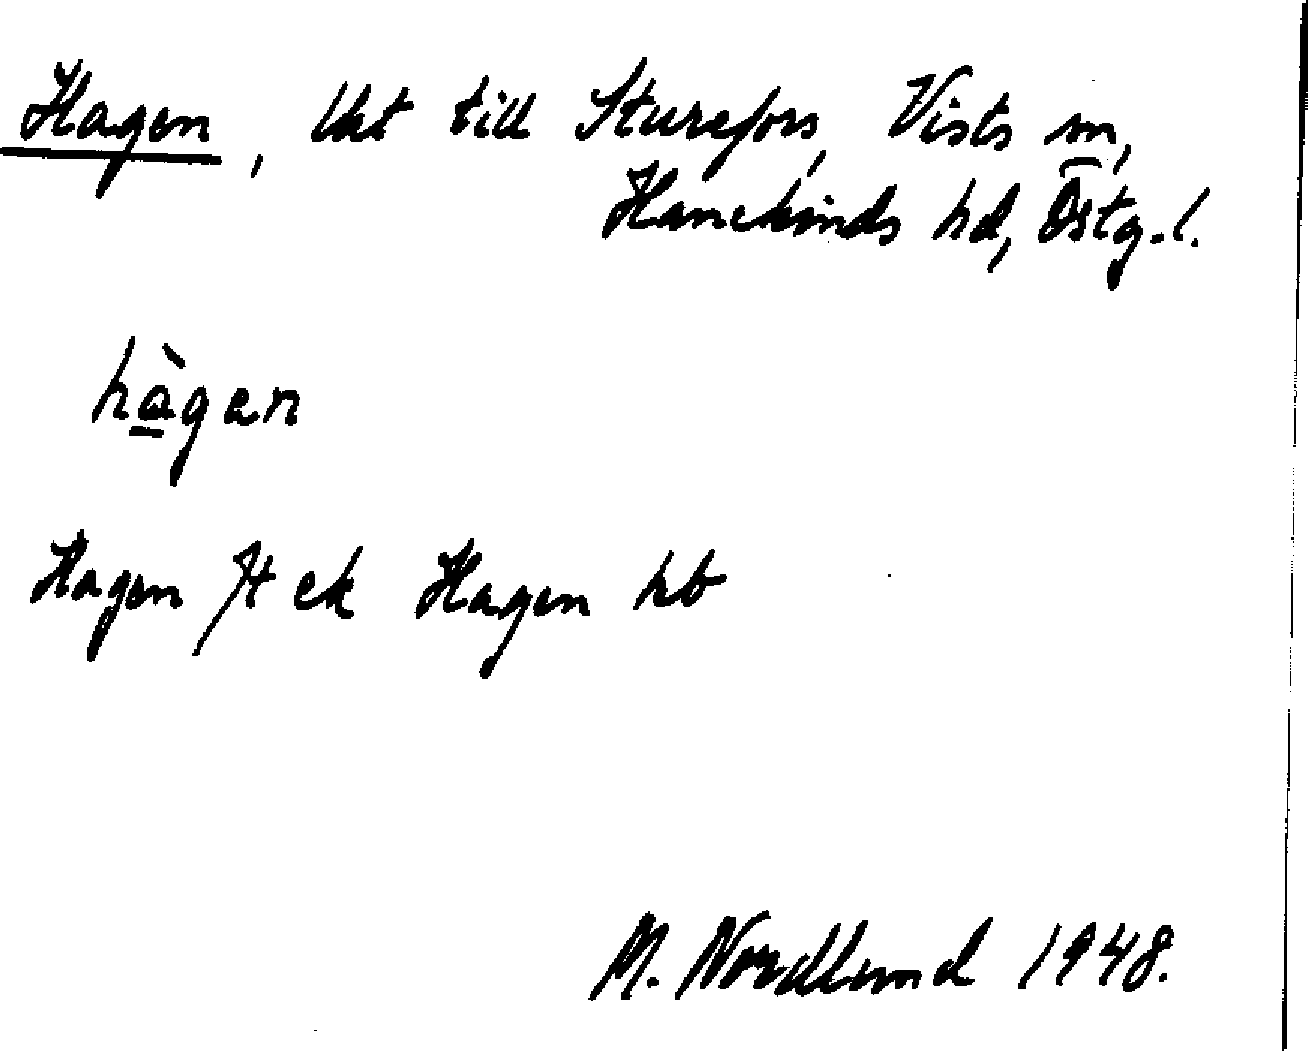 Hagen, lht till Sturefors, Vists sn,
Hanekinds hd, Östg. l.
hàgen
Hagen ek Hagen hb
M. Nordlund 1948.